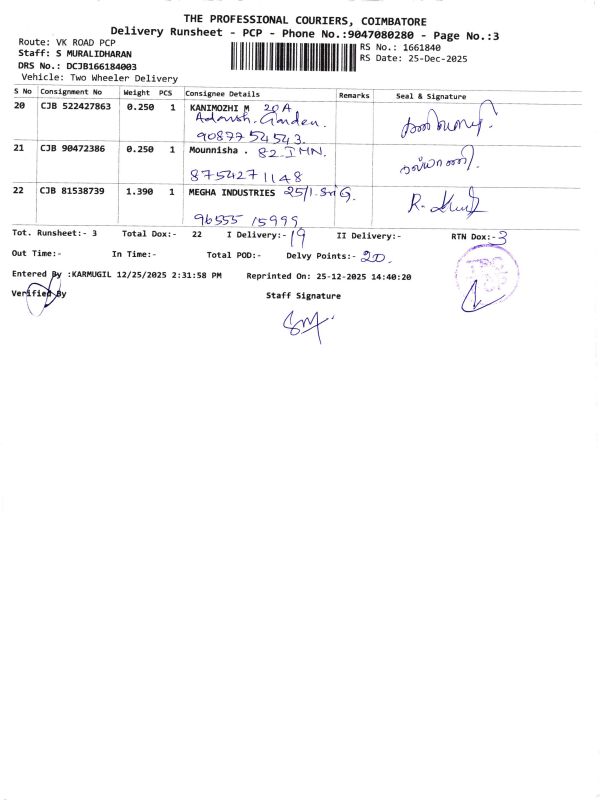 THE PROFESSIONAL COURIERS, COIMBATORE
Delivery Runsheet - PCP - Phone No.:9047080280 - Page No.:3
Route: VK ROAD PCP
Staff: S MURALIDHARAN
DRS No.: DCJB166184003
Vehicle: Two Wheeler Delivery
RS No.: 1661840
RS Date: 25-Dec-2025
S No Consignment No Weight PCS Consignee Details Remarks Seal & Signature
20 CJB 522427863 0.250 1 KANIMOZHI M 20A
Adarsh. Garden.
9087754543.
21 CJB 90472386 0.250 1 Mounnisha . 82 IMN.
8754271148
22 CJB 81538739 1.390 1 MEGHA INDUSTRIES 25/1. Sri G.
96555 15999
Tot. Runsheet:- 3 Total Dox:- 22 I Delivery:- 19 II Delivery:- RTN Dox:- 3
Out Time:- In Time:- Total POD:- Delvy Points:- 20.
Entered By :KARMUGIL 12/25/2025 2:31:58 PM Reprinted On: 25-12-2025 14:40:20
Verified By Staff Signature